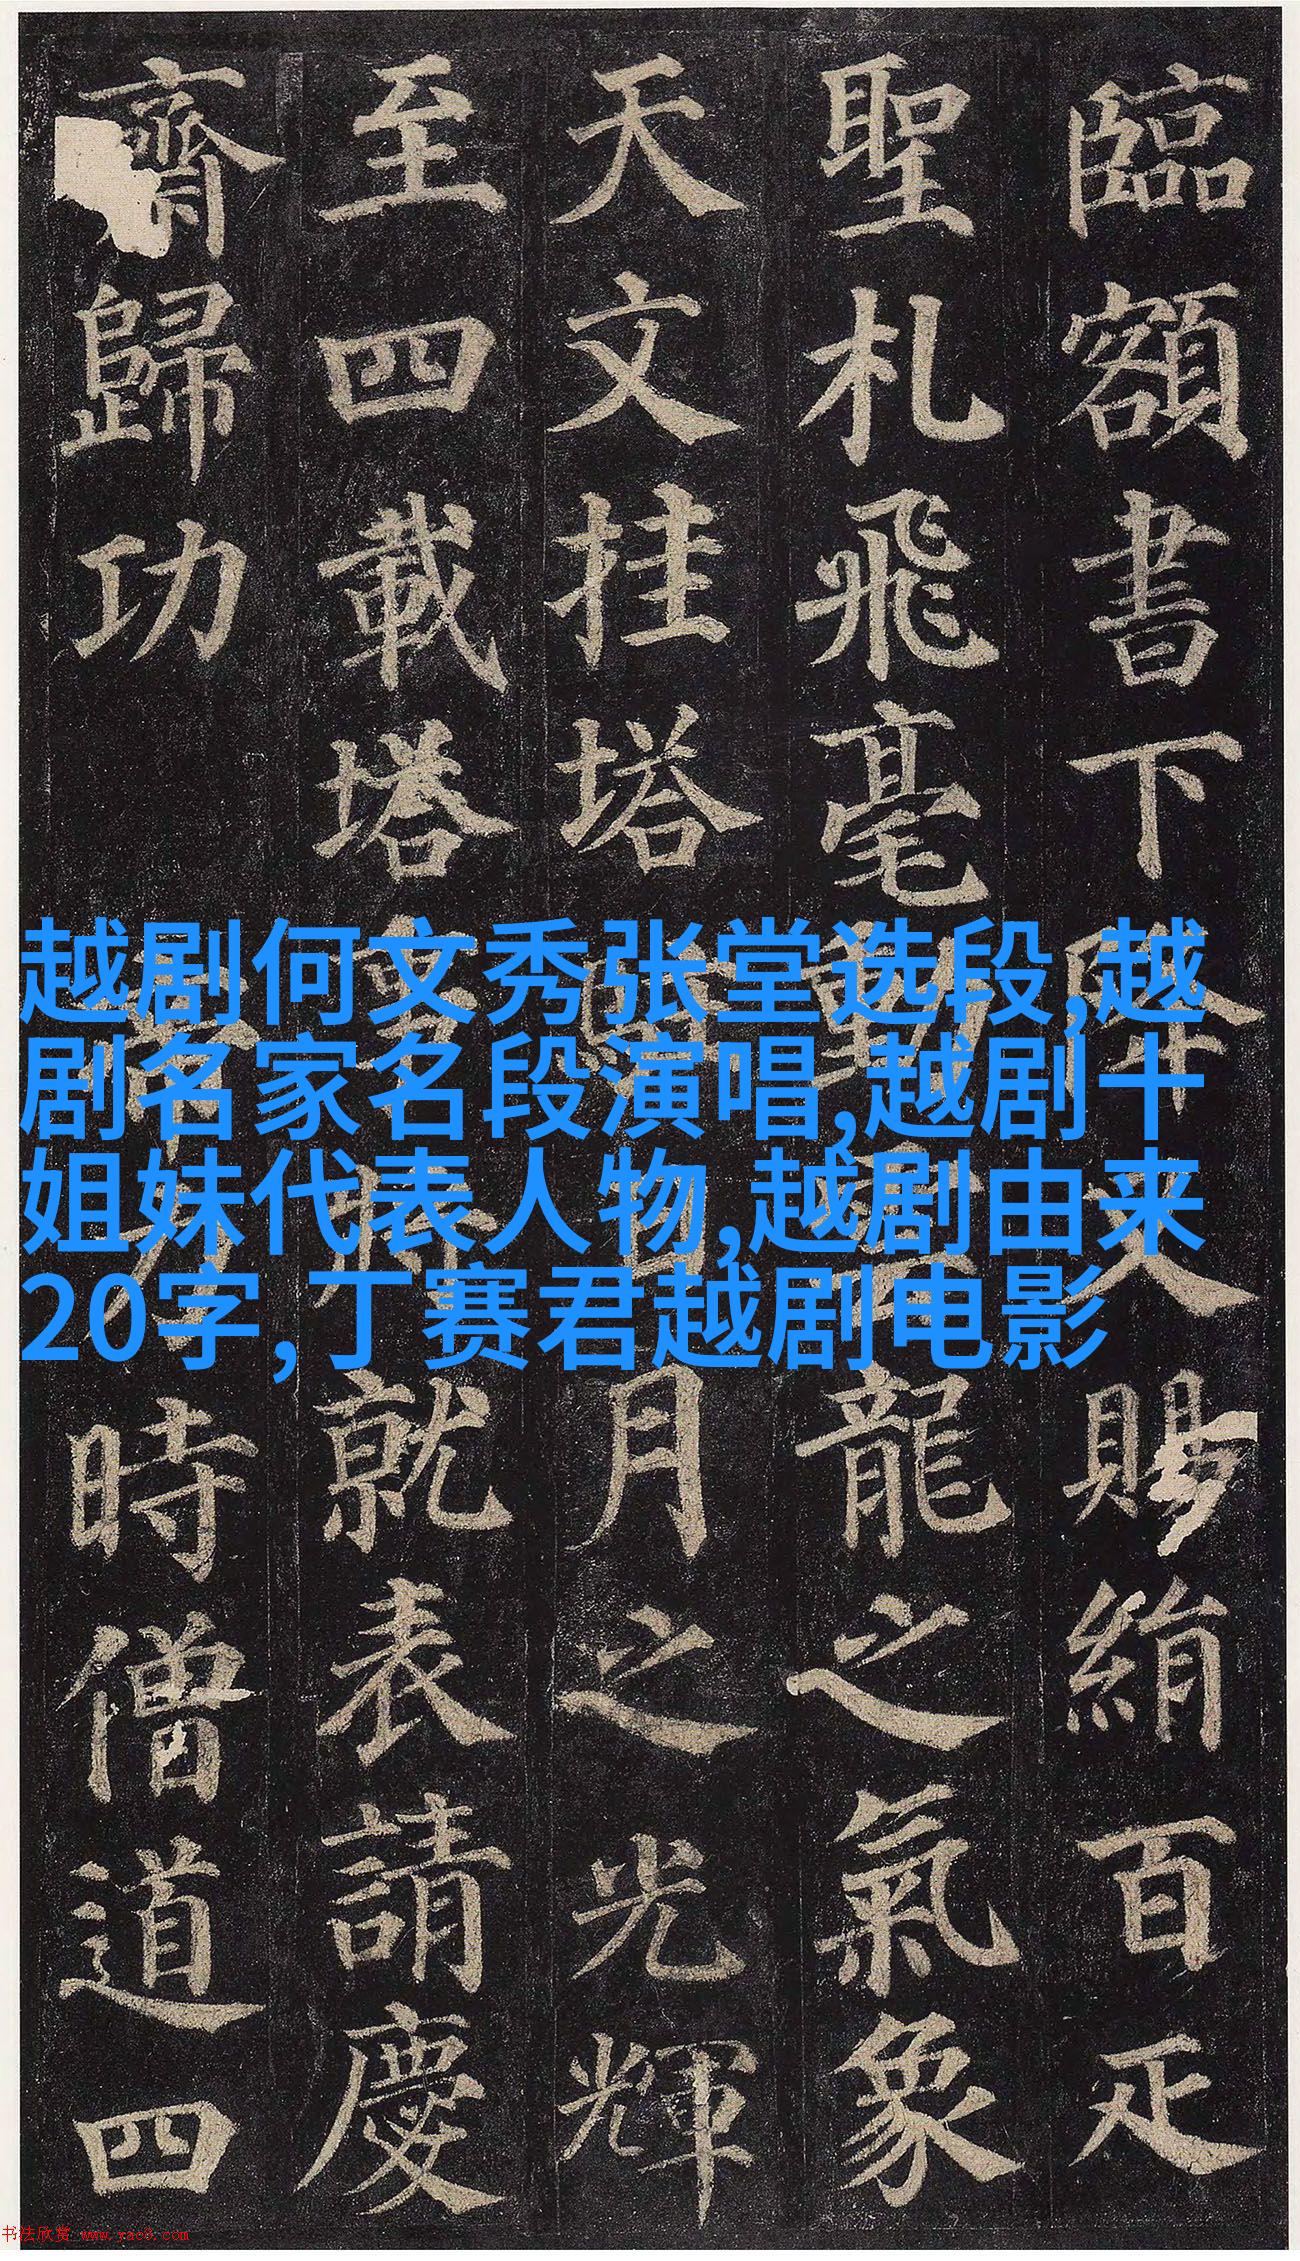 臨額書下降又賜絹百疋
聖札飛毫動雲龍之氣象
天文挂塔駐日月之光輝
至四載塔事將就表請慶
齋歸功帝力時僧道四
越剧何文秀张堂选段,越
剧名家名段演唱,越剧十
姐妹代表人物,越剧由来
20字,丁赛君越剧电影
书法欣赏 www.yac8.com